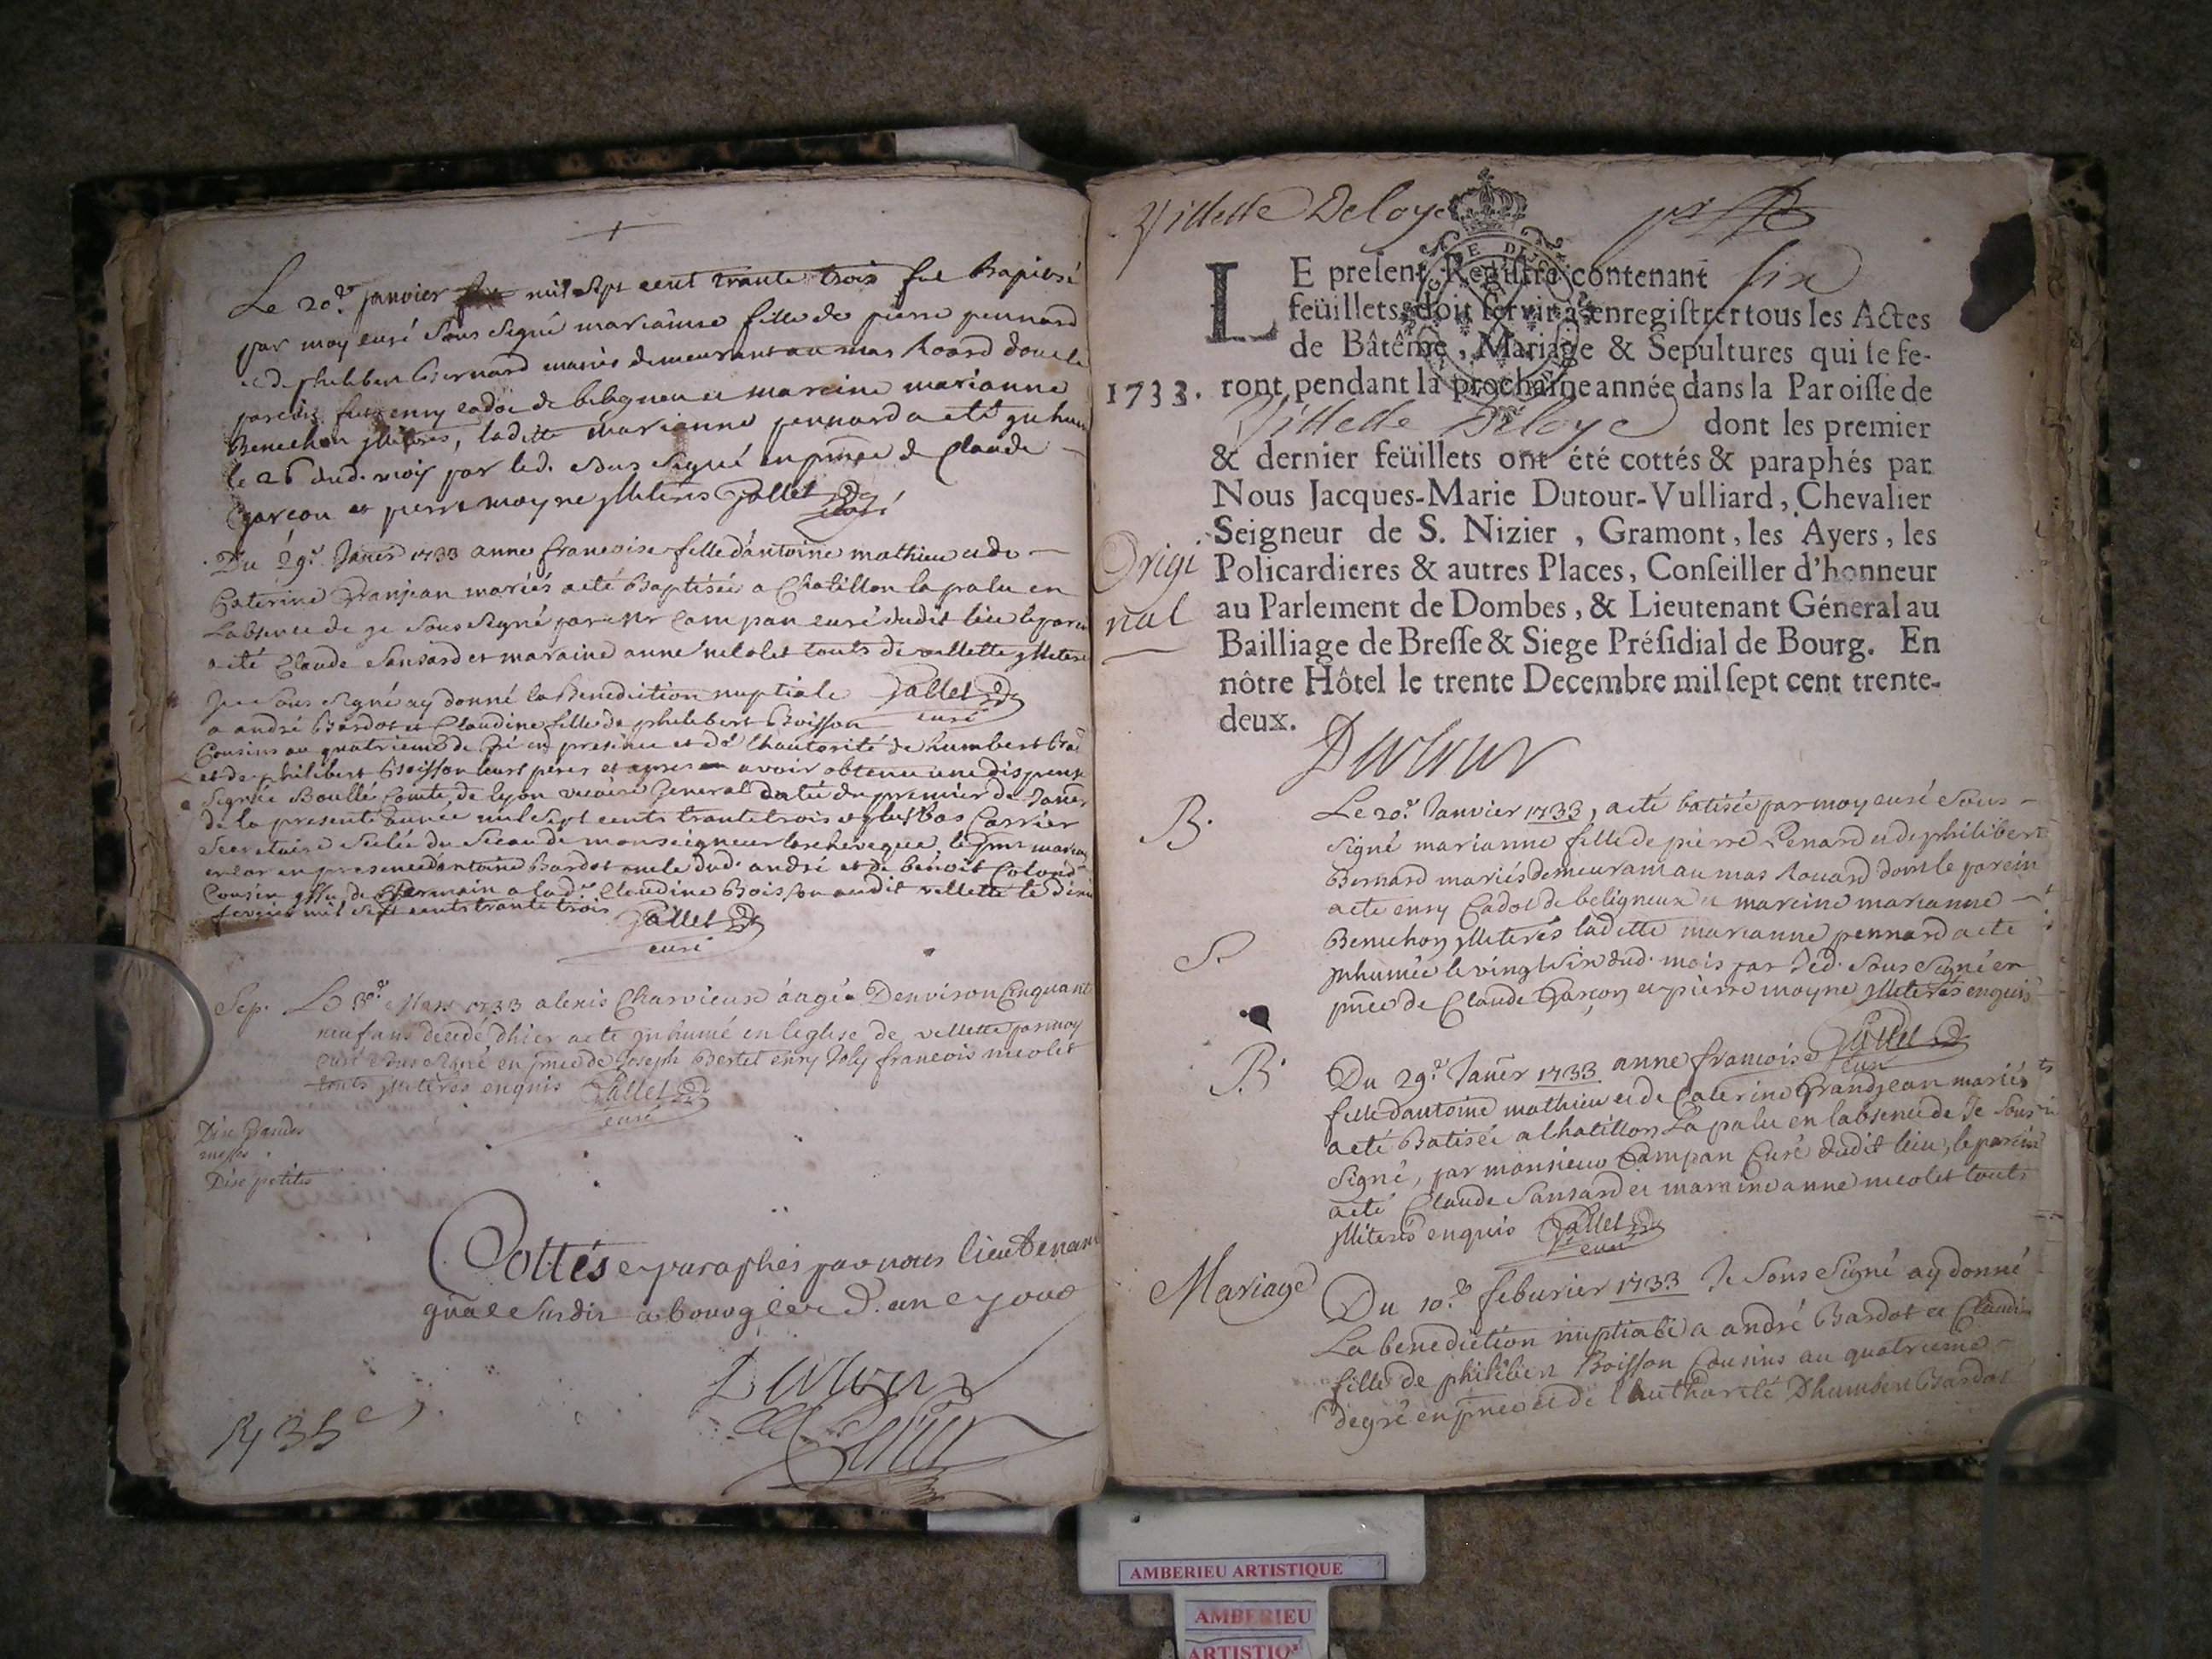 Le 20.e janvier mil sept cent trante trois fut Baptisé
par moy curé sous signé marianne fille de pierre pennard
et de philiberte Bernard mariés demeurant au mas Roard dont le
parein fut enry cadot de beligneu et mareine marianne
Benechon jllitérés, laditte marianne pennard a eté jnhum
le 26 dud. mois par led. sous signé en pnce de Claude
Garcon et pierre moyne jllitérés Gallet
curé
Du 29.e Janer 1733 anne francoise fille d'antoine mathieu et de
Caterine Granjean mariés a eté Baptisée a Chatillon la palu en
l'absence de je sous signé par Mr Campan curé dudit lieu le parein
a eté Claude Sansard et maraine anne nicolet touts de vellette jllitere
Je sous signé ay donné la Benediction nuptiale Gallet
curé
a andré Bardot et Claudine fille de philibert Boisson
Cousins au quatrieme de gré en presence et de l'hautorité de humbert Bar
et de philibert Boisson leurs peres et apres avoir obtenu une dispense
signée Boullé Comte, de lyon vicaire General datée du premier de Janer
de la presente année mil sept cents trante trois et plus bas Carrier
secretaire scelée du sceau de monseigneur larcheveque, le pnt mariage
en presence d'antoine Bardot oncle dud. andré et de benoit Colond
Cousin jssu de Germain a lad.e Claudine Boisson audit vellette le dix
fevrier mil sept cents trante trois Gallet
curé
Sep. Le 3.e Mars 1733 alexis Charvieux aagé D'environ Cinquante
neuf ans decedé d'hier a eté jnhumé en leglise de vellette par moy
curé sous signé en pnce de Joseph Bertet enry Joly francois nicolet
touts jllitérés enquis Gallet
curé
Dix Grandes
messes
Dix petites
Cottés e paraphés par nous lieutenant
gnal susdit a bourg
Dutour
Villette Deloye
LE present Registre contenant six
feüillets, doit servir à enregistrer tous les Actes
de Bâtême, Mariage & Sepultures qui se fe-
1733. ront pendant la prochaine année dans la Paroisse de
Villette Deloye dont les premier
& dernier feüillets ont été cottés & paraphés par
Nous Jacques-Marie Dutour-Vulliard, Chevalier
Seigneur de S. Nizier, Gramont, les Ayers, les
Origi Policardieres & autres Places, Conseiller d'honneur
nal au Parlement de Dombes, & Lieutenant Géneral au
Bailliage de Bresse & Siege Présidial de Bourg. En
nôtre Hôtel le trente Decembre mil sept cent trente-
deux.
Dutour
B. Le 20.e Janvier 1733, a eté batisée par moy curé sous
signé marianne fille de pierre Penard et de philiberte
Bernard mariés demeurant au mas Rouard dont le parein
a eté enry Cadot de beligneux et mareine marianne
Benechon jllitérés laditte marianne pennard a eté
S. jnhumée le vingt six dud. mois par led. sous signé en
pnce de Claude Garçon et pierre moyne jllitérés enquis
Gallet
curé
B. Du 29.e Janer 1733 anne francoise
fille d'antoine mathieu et de Caterine Grandjean mariés
a eté Batisée a Chatillon La palu en l'absence de Je sous
signé, par monsieur Campan Curé dudit lieu, le parein
a eté Claude Sansard et maraine anne nicolet touts
jllitérés enquis Gallet
curé
Mariage Du 10.e feburier 1733 Je sous signé ay donné
La benediction nuptiale a andré Bardot et Claudine
fille de philibert Boisson Cousins au quatrieme
degré en pnce et de l'authorité D'humbert Bardot
AMBERIEU ARTISTIQUE
AMBERIEU
ARTISTIQ